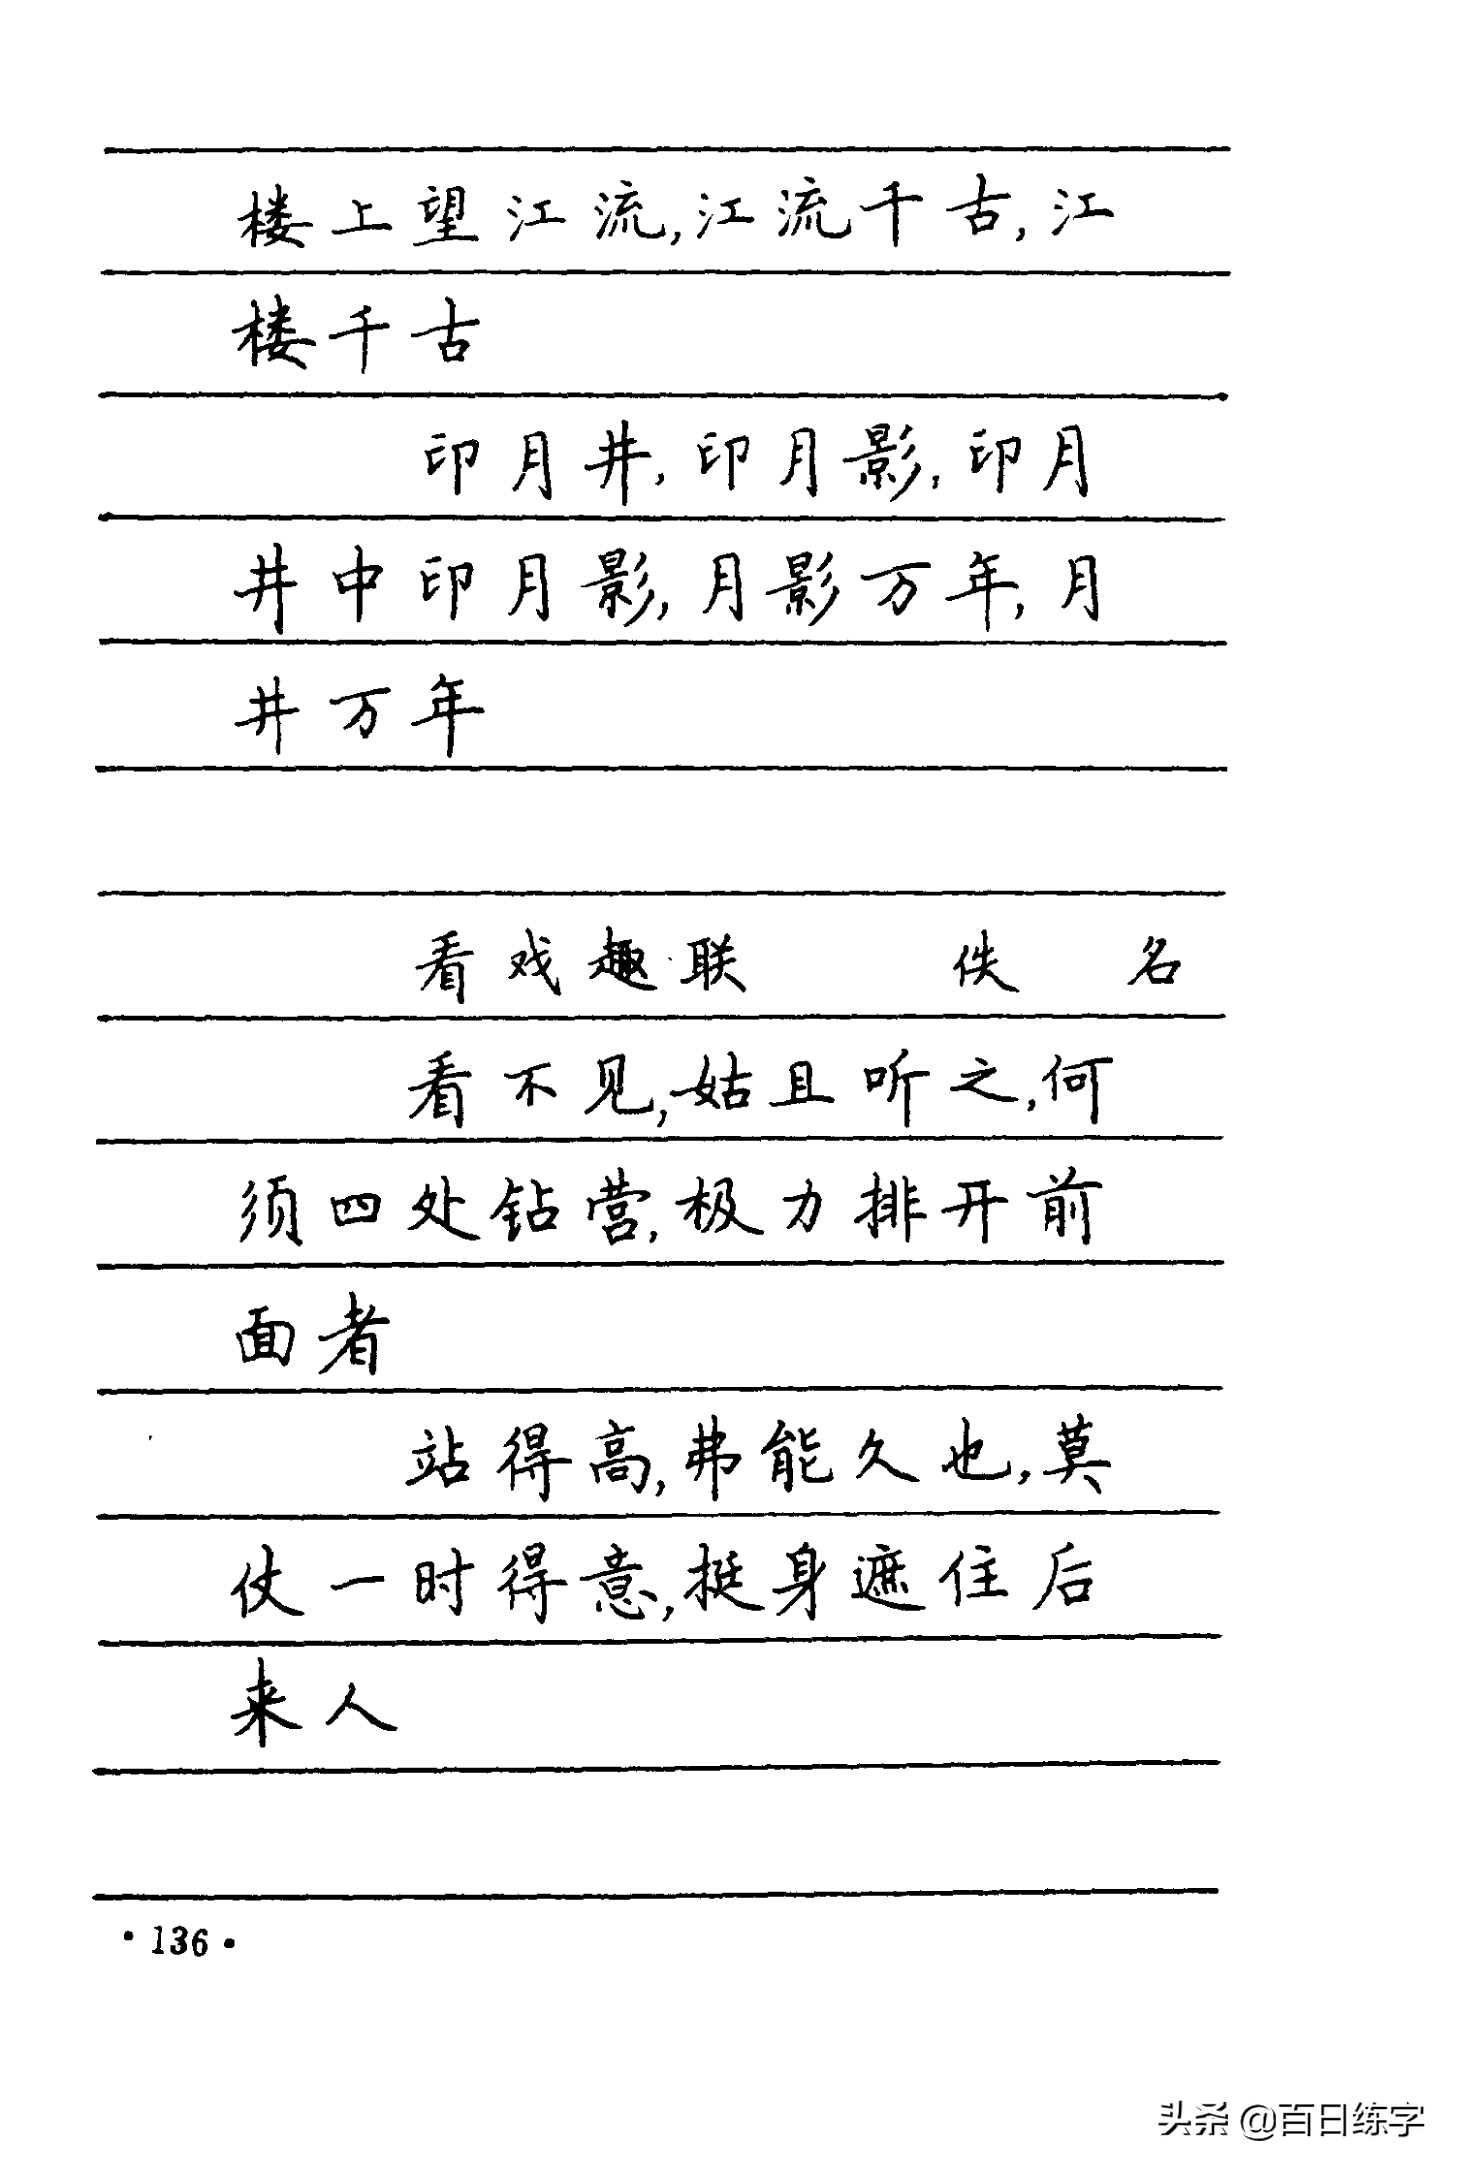 楼上望江流,江流千古,江
楼千古
印月井,印月影,印月
井中印月影,月影万年,月
井万年
看戏趣联 佚 名
看不见,姑且听之,何
须四处钻营,极力排开前
面者
站得高,弗能久也,莫
仗一时得意,挺身遮住后
来人
·136·
头条 @百日练字